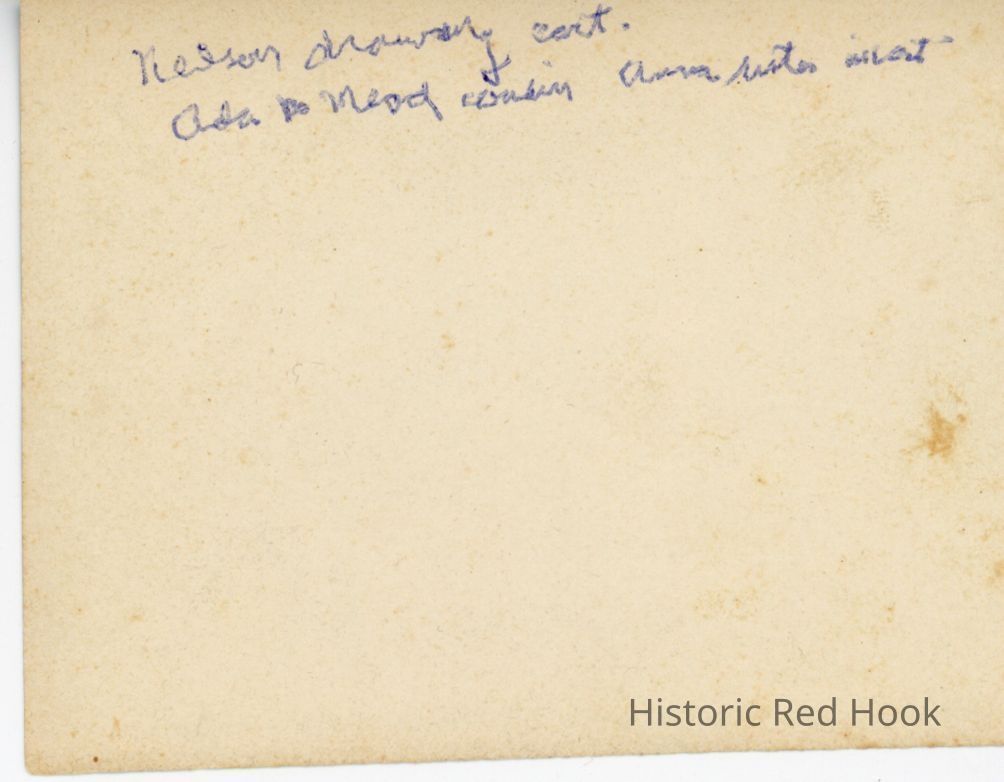 Nelson drawing cart.
Ada Mead cousin Anna sister in cart
Historic Red Hook